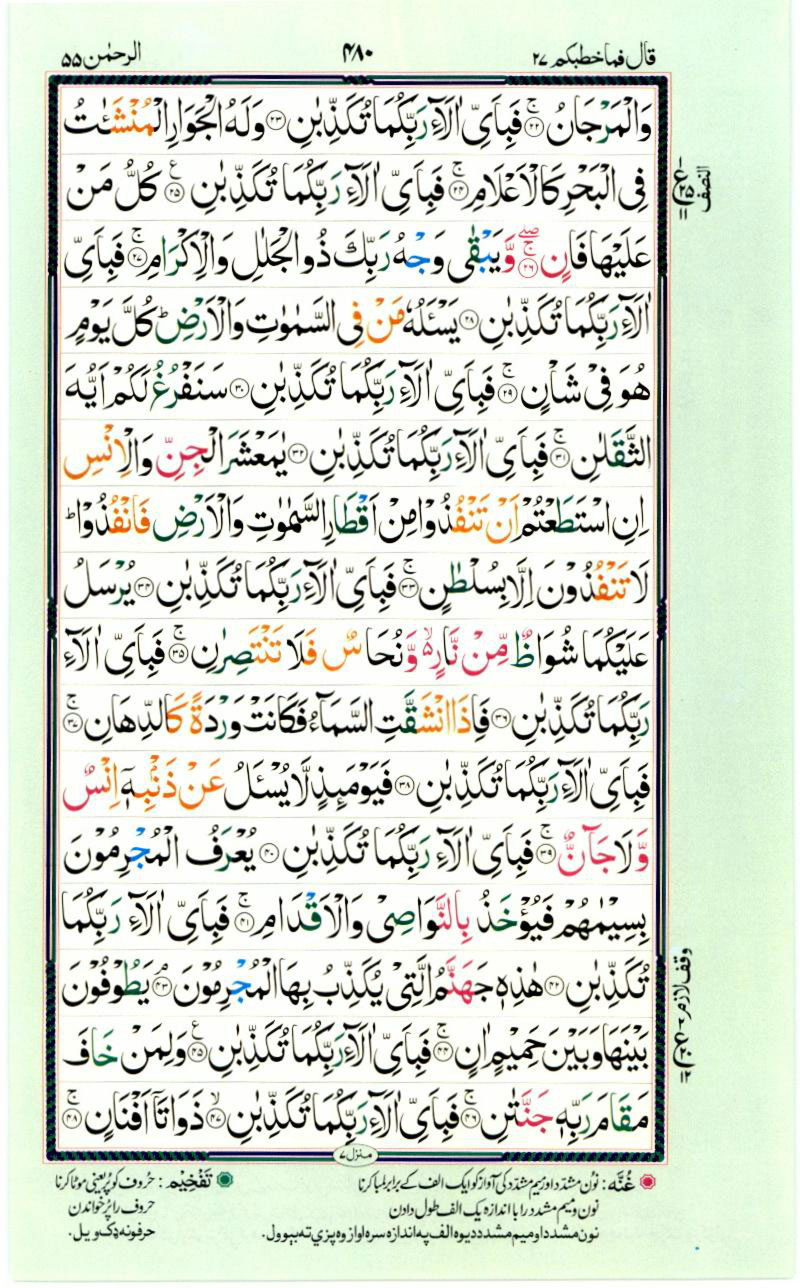 قال فماخطبكم ٢٧
۴۸۰
الرحمٰن ۵۵
وَالْمَرْجَانُ ۚ﴿۲۲﴾ فَبِاَىِّ اٰلَآءِ رَبِّكُمَا تُكَذِّبٰنِ ﴿۲۳﴾ وَلَهُ الْجَوَارِ الْمُنْشَـٰٔتُ
فِى الْبَحْرِ كَالْاَعْلَامِ ۚ﴿۲۴﴾ فَبِاَىِّ اٰلَآءِ رَبِّكُمَا تُكَذِّبٰنِ ﴿۲۵﴾ ع كُلُّ مَنْ
عَلَيْهَا فَانٍ ۚۖ﴿۲۶﴾ وَّيَبْقٰى وَجْهُ رَبِّكَ ذُو الْجَلٰلِ وَالْاِكْرَامِ ۚ﴿۲۷﴾ فَبِاَىِّ
اٰلَآءِ رَبِّكُمَا تُكَذِّبٰنِ ﴿۲۸﴾ يَسْـَٔلُهٗ مَنْ فِى السَّمٰوٰتِ وَالْاَرْضِ ؕ كُلَّ يَوْمٍ
هُوَ فِىْ شَاْنٍ ۚ﴿۲۹﴾ فَبِاَىِّ اٰلَآءِ رَبِّكُمَا تُكَذِّبٰنِ ﴿۳۰﴾ سَنَفْرُغُ لَكُمْ اَيُّهَ
الثَّقَلٰنِ ۚ﴿۳۱﴾ فَبِاَىِّ اٰلَآءِ رَبِّكُمَا تُكَذِّبٰنِ ﴿۳۲﴾ يٰمَعْشَرَ الْجِنِّ وَالْاِنْسِ
اِنِ اسْتَطَعْتُمْ اَنْ تَنْفُذُوْا مِنْ اَقْطَارِ السَّمٰوٰتِ وَالْاَرْضِ فَانْفُذُوْا ؕ
لَا تَنْفُذُوْنَ اِلَّا بِسُلْطٰنٍ ۚ﴿۳۳﴾ فَبِاَىِّ اٰلَآءِ رَبِّكُمَا تُكَذِّبٰنِ ﴿۳۴﴾ يُرْسَلُ
عَلَيْكُمَا شُوَاظٌ مِّنْ نَّارٍ ۙ وَّنُحَاسٌ فَلَا تَنْتَصِرٰنِ ۚ﴿۳۵﴾ فَبِاَىِّ اٰلَآءِ
رَبِّكُمَا تُكَذِّبٰنِ ﴿۳۶﴾ فَاِذَا انْشَقَّتِ السَّمَآءُ فَكَانَتْ وَرْدَةً كَالدِّهَانِ ۚ﴿۳۷﴾
فَبِاَىِّ اٰلَآءِ رَبِّكُمَا تُكَذِّبٰنِ ﴿۳۸﴾ فَيَوْمَئِذٍ لَّا يُسْـَٔلُ عَنْ ذَنْۢبِهٖۤ اِنْسٌ
وَّلَا جَآنٌّ ۚ﴿۳۹﴾ فَبِاَىِّ اٰلَآءِ رَبِّكُمَا تُكَذِّبٰنِ ﴿۴۰﴾ يُعْرَفُ الْمُجْرِمُوْنَ
بِسِيْمٰهُمْ فَيُؤْخَذُ بِالنَّوَاصِىْ وَالْاَقْدَامِ ۚ﴿۴۱﴾ فَبِاَىِّ اٰلَآءِ رَبِّكُمَا
تُكَذِّبٰنِ ﴿۴۲﴾ هٰذِهٖ جَهَنَّمُ الَّتِىْ يُكَذِّبُ بِهَا الْمُجْرِمُوْنَ ۘ﴿۴۳﴾ يَطُوْفُوْنَ
بَيْنَهَا وَبَيْنَ حَمِيْمٍ اٰنٍ ۚ﴿۴۴﴾ فَبِاَىِّ اٰلَآءِ رَبِّكُمَا تُكَذِّبٰنِ ﴿۴۵﴾ ع وَلِمَنْ خَافَ
مَقَامَ رَبِّهٖ جَنَّتٰنِ ۚ﴿۴۶﴾ فَبِاَىِّ اٰلَآءِ رَبِّكُمَا تُكَذِّبٰنِ ۙ﴿۴۷﴾ ذَوَاتَاۤ اَفْنَانٍ ۚ﴿۴۸﴾
النصف
ع
وقف لازم
منزل ۷
غُنَّه : نون مشدد اور میم مشدد کی آواز کو ایک الف کے برابر لمبا کرنا
نون و میم مشدد را با اندازہ یک الف طول دادن
نون مشدد او میم مشدد دیوه الف په اندازه سره اواز وه پزې ته بېوول.
تَفْخِيْم : حروف کو پُر یعنی موٹا کرنا
حروف را پُر خواندن
حرفونه ډک ویل.